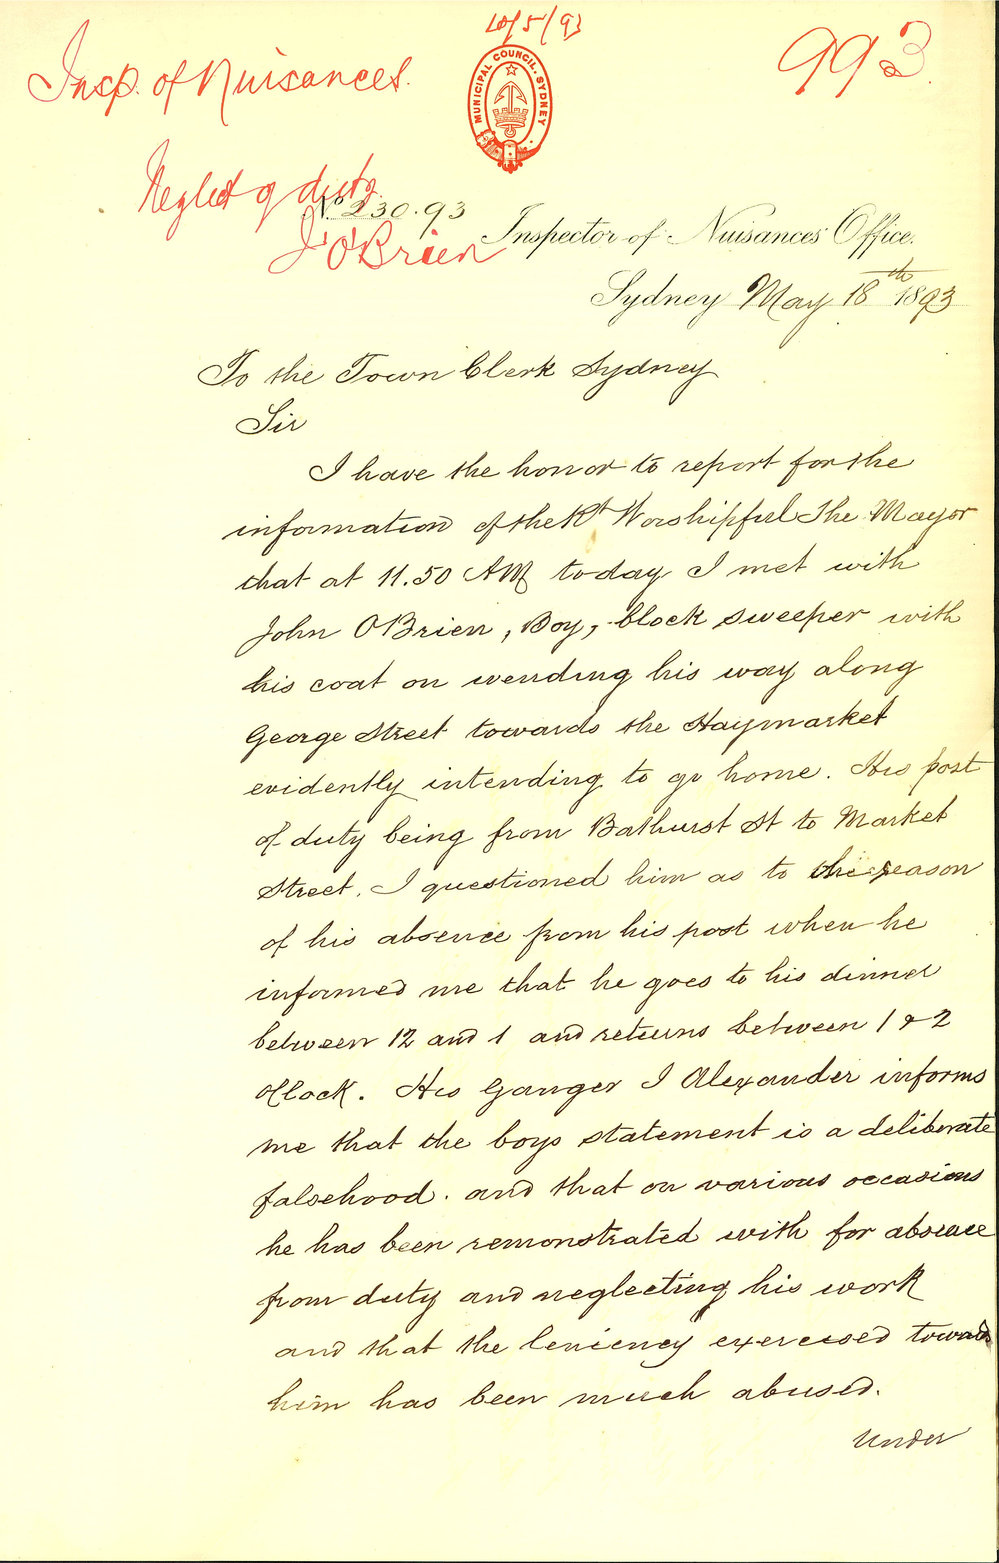 18/5/93
993
Insp. of Nuisances.
MUNICIPAL COUNCIL. SYDNEY
Neglect of duty
No. 230.93
J. O'Brien
Inspector of Nuisances' Office.
Sydney May 18th 1893
To the Town Clerk Sydney
Sir
I have the honor to report for the
information of the Rt Worshipful The Mayor
that at 11.50 AM today I met with
John O'Brien, Boy, block sweeper with
his coat on wending his way along
George Street towards the Haymarket
evidently intending to go home. His post
of duty being from Bathurst St to Market
Street. I questioned him as to the reason
of his absence from his post when he
informed me that he goes to his dinner
between 12 and 1 and returns between 1 & 2
Oclock. His Ganger J Alexander informs
me that the boys statement is a deliberate
falsehood. and that on various occasions
he has been remonstrated with for absence
from duty and neglecting his work
and that the leniency exercised towards
him has been much abused.
Under